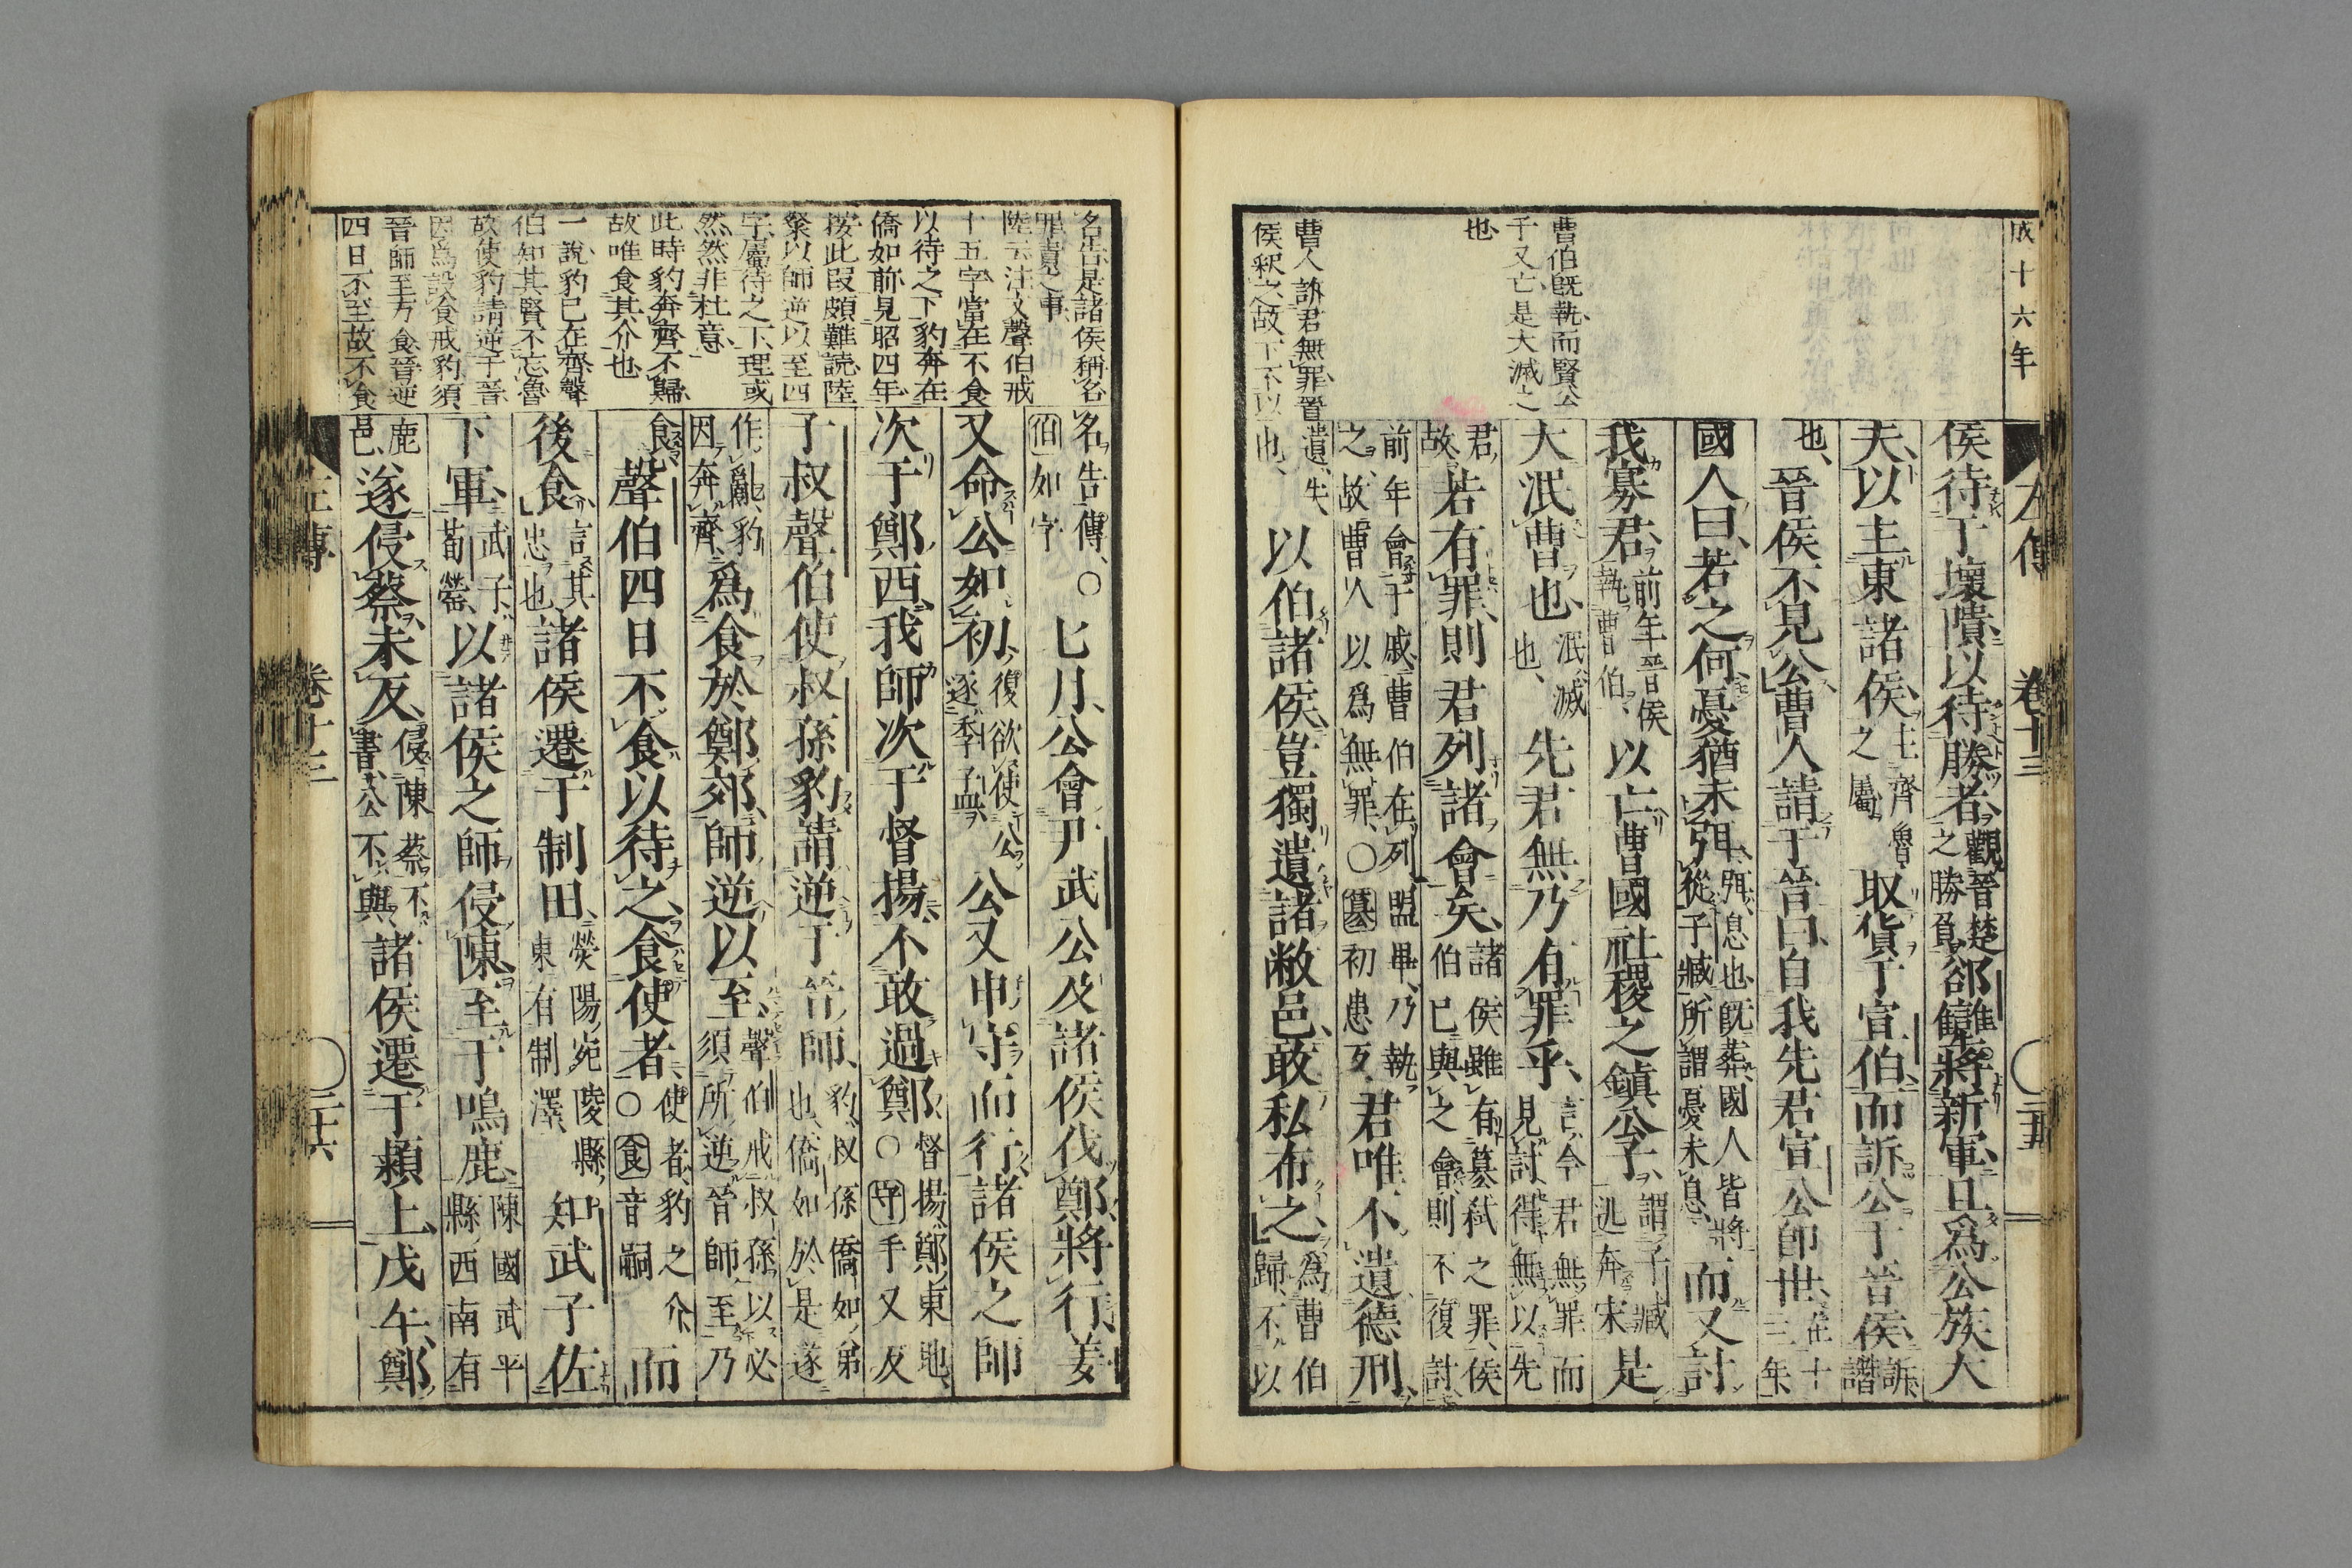 成十六年
左傳 卷十三 ○二十五
曹伯既執而賢公
子又亡是大滅之
也
曹人訴君無罪晉
侯釈之故下不以
侯待于壞隤以待勝者觀晉楚之勝負郤犨將新軍且爲公族大
夫以主東諸侯主齊魯之屬取貨于宣伯而訴公于晉侯訴譖
也晉侯不見公曹人請于晉曰自我先君宣公即世在十三年
國人曰若之何憂猶未弭弭息也既葬國人皆將從子臧所謂憂未息而又討
我寡君前年晉侯執曹伯以亡曹國社稷之鎮公子謂子臧逃奔宋是
大泯曹也泯滅也先君無乃有罪乎言今君無罪而見討得無以先
君故若有罪則君列諸會矣諸侯雖有簒弑之罪侯伯已與之會則不復討
前年會于戚曹伯在列盟畢乃執之故曹人以爲無罪○簒初患反君唯不遺德刑
遺失也以伯諸侯豈獨遺諸敝邑敢私布之爲曹伯歸不以
名告是諸侯稱名
罪責之事
陸云注文聲伯戒
十五字當在不食
以待之下豹奔在
僑如前見昭四年
按此叚頗難読陸
槩以師逆以至四
字屬待之下理或
然然非杜意
此時豹奔齊不歸
故唯食其介也
一說豹已在齊聲
伯知其賢不忘魯
故使豹請逆于晉
因爲設食戒豹須
晉師至方食晉逆
四日不至故不食
名告傳○七月公會尹武公及諸侯伐鄭將行姜
伯如字
又命公如初復欲使公逐季孟公又申守而行諸侯之師
次于鄭西我師次于督揚不敢過鄭督揚鄭東地○守手又反
子叔聲伯使叔孫豹請逆于晉師豹叔孫僑如弟也僑如於是遂
作亂豹因奔齊爲食於鄭郊師逆以至聲伯戒叔孫以必須所逆晉師至乃
食聲伯四日不食以待之食使者使者豹之介○食音嗣而
後食言其忠也諸侯遷于制田滎陽宛陵縣東有制澤知武子佐
下軍武子荀罃以諸侯之師侵陳至于鳴鹿陳國武平縣西南有
鹿邑遂侵蔡未反侵陳蔡不書公不與諸侯遷于潁上戊午鄭
左傳 卷十三 ○二十六